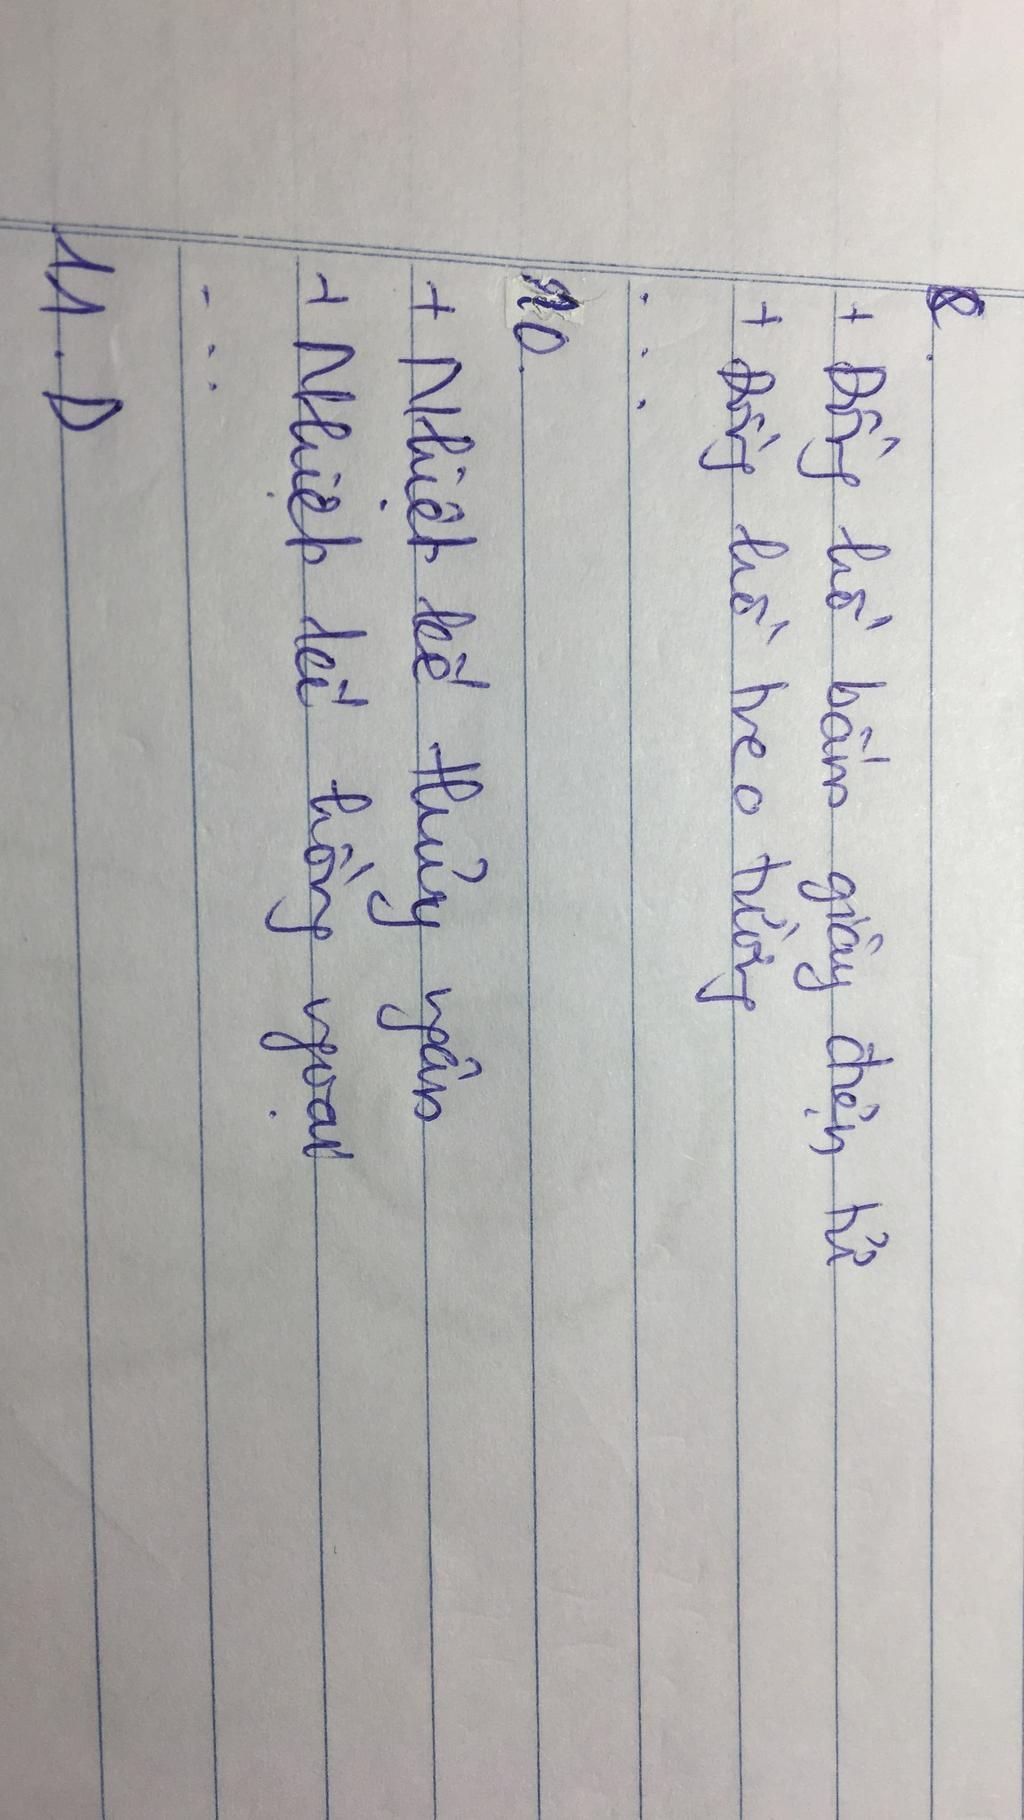 8.
+ Đồng hồ bấm giây điện tử
+ Đồng hồ treo tường
...
10.
+ Nhiệt kế thủy ngân
+ Nhiệt kế hồng ngoại
...
11. D